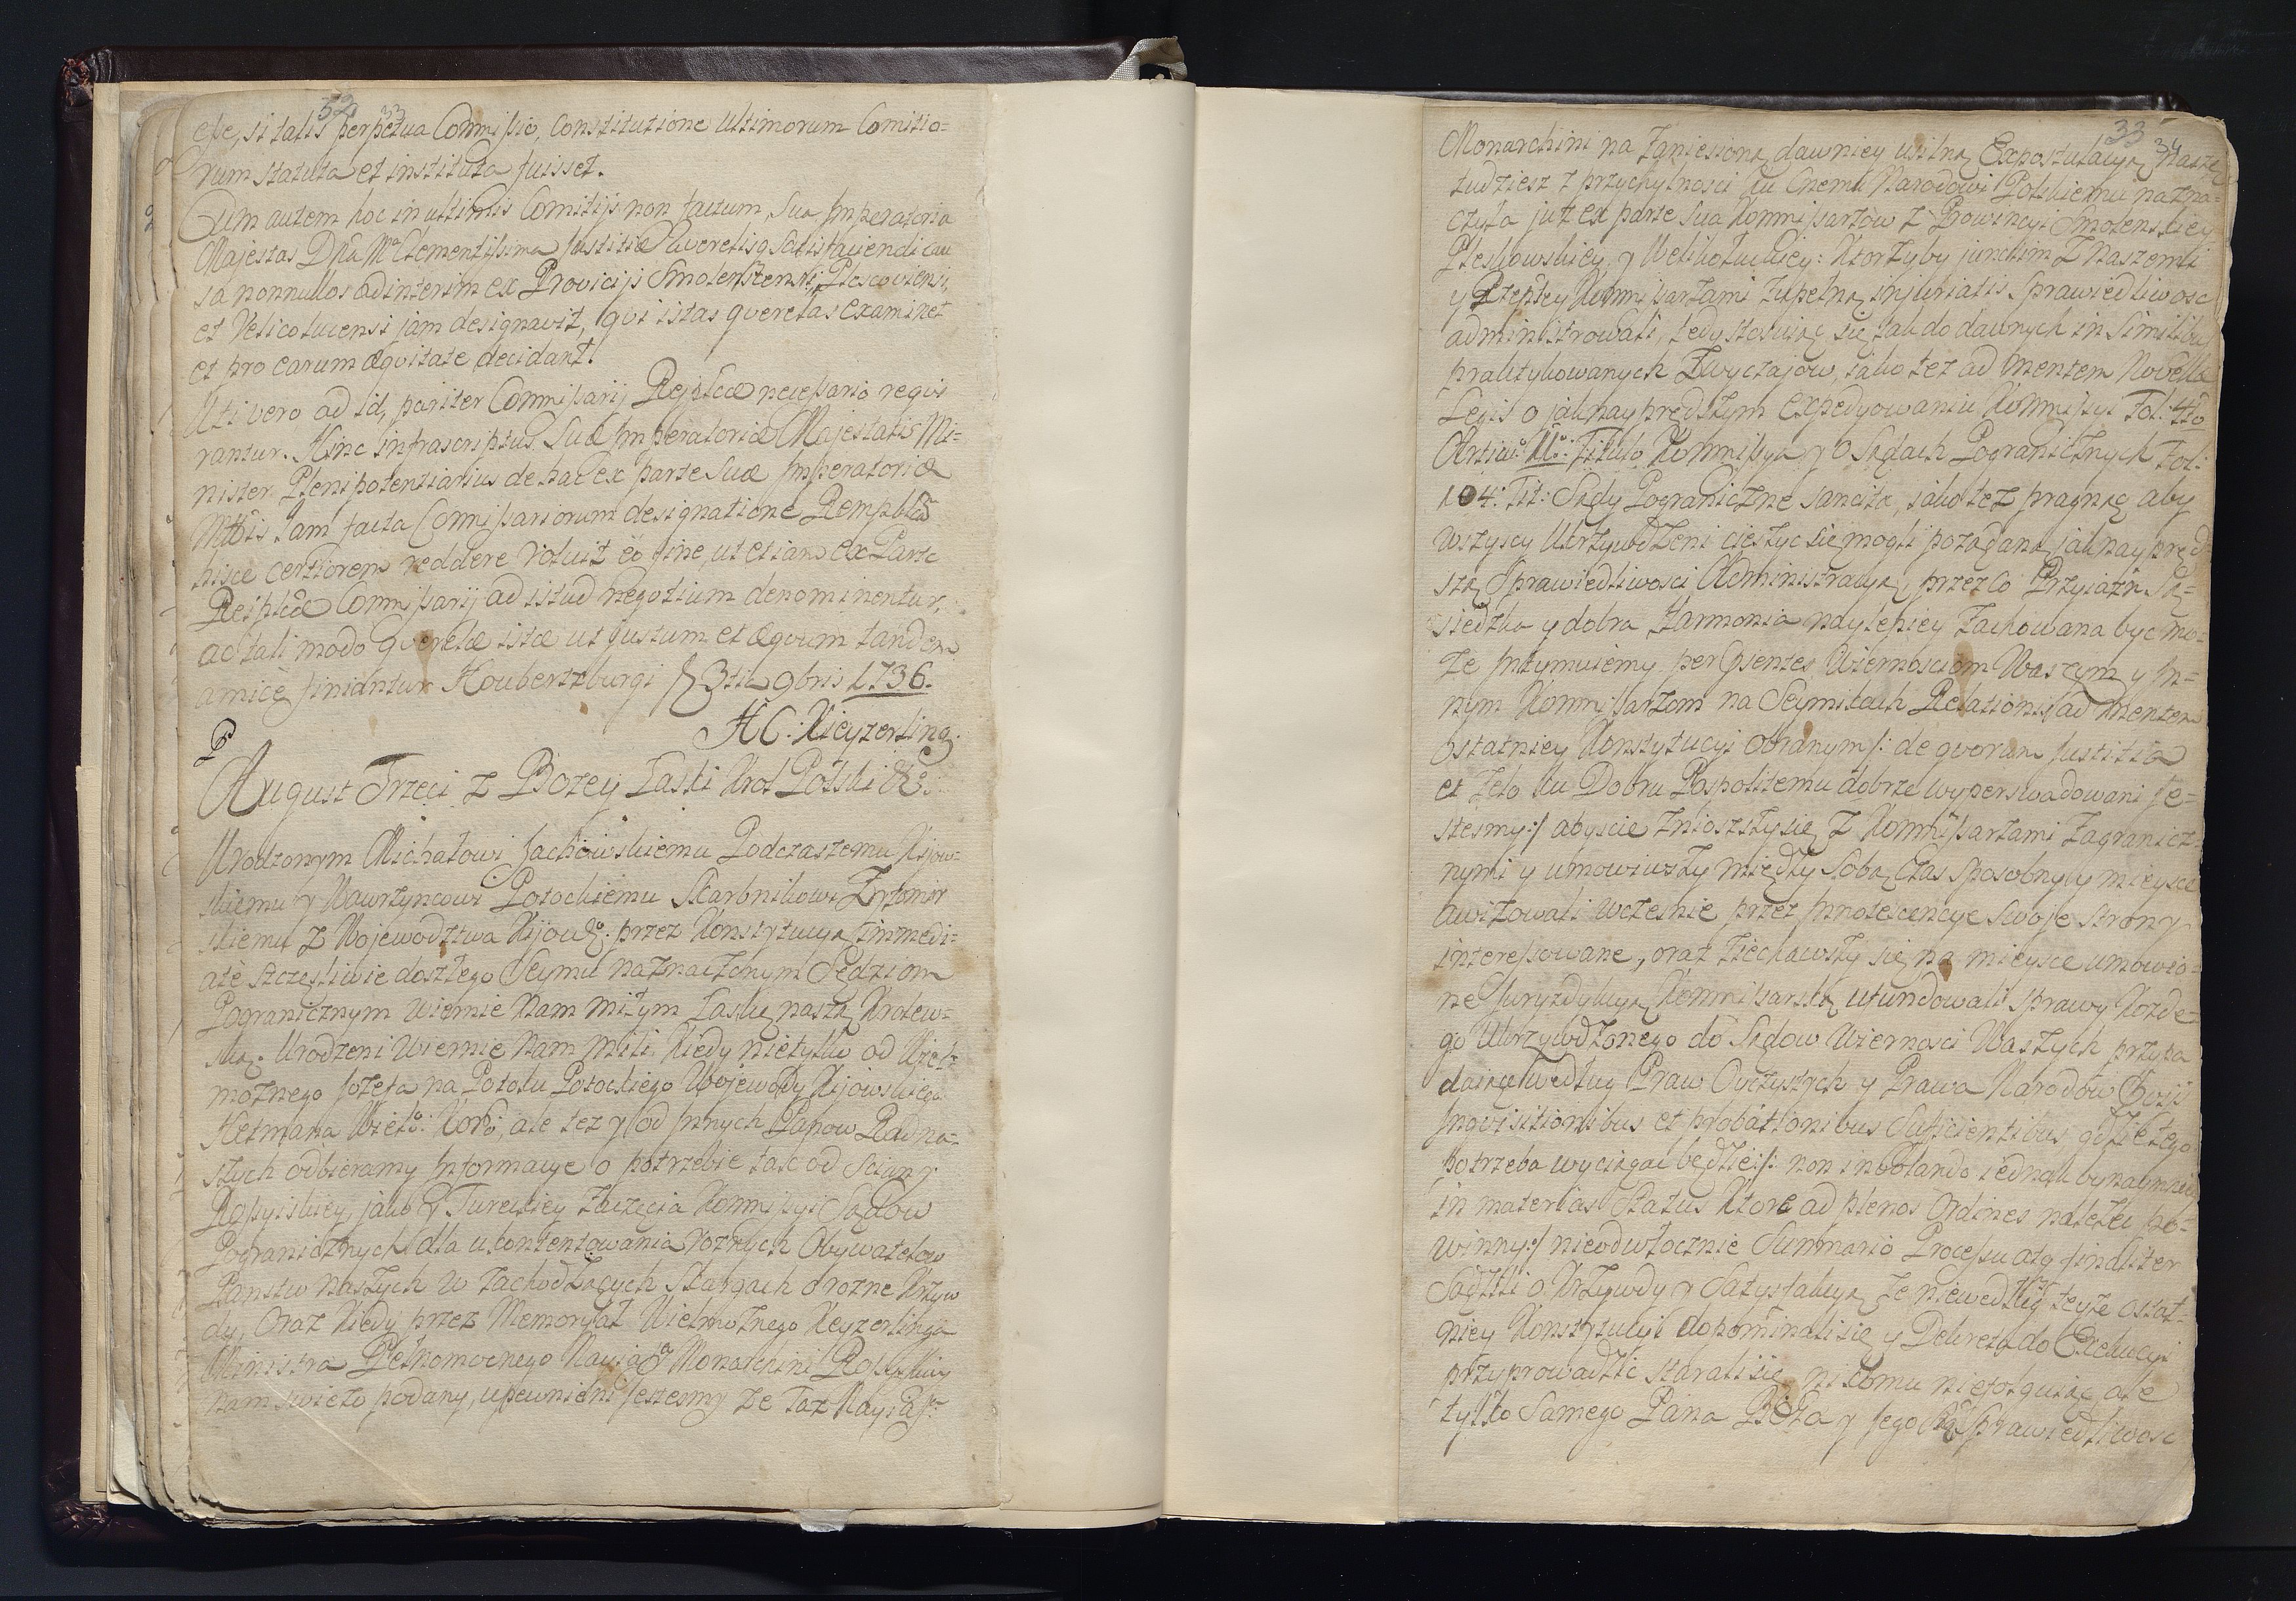 32 33
esse, si talis perpetua Commissio, Constitutione ultimorum Comitio=
rum statuta et instituta fuisset.
Cum autem hoc in ultimis Comitijs non factum, Sua Imperatoria
Majestas Dna Ma Clementissima Justitiæ Querelisq Satisfaciendi cau
sa nonnullos ad interim ex Provicijs Smolenscensi, Plescoviensi,
et Velicolucensi jam designavit, qvi istas qverelas examinet
et pro earum æqvitate decidant.
Uti vero ad id, pariter Commissarij Reiplcæ necessario reqvi
rantur. Hinc infrascriptus Suæ Imperatoriæ Majestatis Mi=
nister Plenipotentiarius de hac ex parte Suæ Imperatoriæ
Mttis iam facta Commissariorum designatione Rempblcam
hisce certiorem reddere voluit eo fine, ut etiam ex Parte
Reiplcæ Commissarij ad istud negotium denominentur,
ac tali modo qverelæ istæ ut justum et æqvum tandem
amicè finiantur Houbertzburgi 3tia 9bris 1736.
H C: Kieyzerling.
P
August Trzeci z Bozey Łaski Krol Polski &c:
Urodzonym Michałowi Jachowskiemu Podczaszemu Kijow=
skiemu y Wawrzyncowi Potockiemu Skarbnikowi Zytomir
skiemu z Wojewodztwa Kijowgo. przez Konstytucyą immedi=
atè szczęsliwie doszłego Seymu naznaczonym Sędziom
Pogranicznym wiernie Nam miłym Łaskę naszą Krolew=
ską. Urodzeni wiernie Nam mili Kiedy nietylko od Wiel=
możnego Jozefa na Potoku Potockiego Wojewody Kijowskiego
Hetmana Wielo: Koro, ale tez y od Innych Panow Rad na=
szych odbieramy Informacye o potrzebie tak od Sciany
Rossyiskiey jako y Tureckiey Zaczęcia Kommissyi Sądow
Pogranicznych dla ukontentowania roznych Obywatelow
Panstw naszych w zachodzących Skargach o rozne Krzyw
dy, Oraz Kiedy przez Memoryał Wielmożnego Keyzerlinga
Ministra Pełnomocnego Nayiasr Monarchini Rossyiskiey
nam swiezo podany, upewnieni jestesmy ze Taz Nayiassr
33 34
Monarchini na Zaniesioną dawniey usilną Expostulacyą Naszę
tudziesz z przychylnosci ku Cnemu Narodowi Polskiemu nazna=
czyła juz ex parte sua Kommissarzow z Prowincyi Smolenskiey
Pleskowskiey, y Wielikoluckiey: Ktorzyby junctim z Naszemi
y Rzeptey Kommissarzami zupełną injuriatis Sprawiedliwosc
administrowali, tedy stosuiąc się tak do dawnych in Similibus
praktykowanych Zwyczajow, iako tez ad mentem Novellæ
Legis o jaknayprędszym Expedyowaniu Kommissyi Fol: 4to
Titulo Kommissya y O Sądach Pogranicznych Fol:
104: Tit: Sądy Pograniczne sancita, jako tez pragnąc aby
wszyscy Ukrzywdzeni cieszyc się mogli pozadaną jaknaypręd=
szą Sprawiedliwosci Administracyą, przez co Przyiazn Są=
siedzka y dobra Harmonia naylepiey Zachowana byc mo=
ze Intymuiemy per Psentes Wiernosciom Waszym y In=
nym Kommissarzom na Seymikach Relationis ad mentem
ostatniey Konstytucyi obranym /: de qvorum Justitia
et Zelo ku Dobru Pospolitemu dobrze wyperswadowani je=
stesmy:/ abyscie Znioszszy się z Kommissarzami Zagranicz=
nymi y umowiwszy między Sobą Czas sposobny y mieysce
awizowali wczesnie przez Innotescencye Swoje strony
interessowane, oraz ziechawszy się na mieysce umowio=
ne Juryzdykcyą Kommissarską ufundowali Sprawy Kożde=
go Ukrzywdzonego do Sądow Wiernosci Waszych przypa
daiące według Praw Oyczystych y Prawa Narodow
Inqvisitionibus et probationibus Suficientibus gdzie tego
potrzeba wyciągac będzie /: non involando iednak bynaimniey
in materias Status Ktore ad plenos Ordines należec po=
winny:/ nieodwłocznie Summario Processu atq finaliter
Sądzili o Krzywdy y Satysfakcyą ze niewedług teyze ostat=
niey Konstytucyi dopominali się y Dekreta do Exekucyi
przyprowadzic starali się nikomu niefolguiąc ale
tylko Samego Pana Boga y Jego Sprawiedliwosc